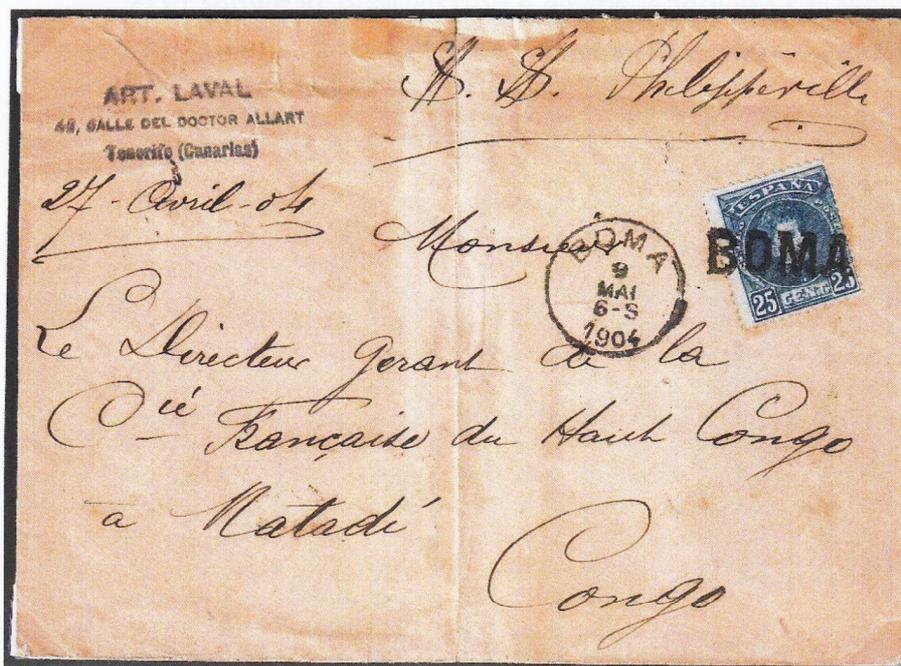 ART. LAVAL
48, CALLE DEL DOCTOR ALLART
Tenerife (Canarias)
S. S. Philippeville
27 - Avril - 04
ESPAÑA
BOMA
25 CENT 25
BOMA
9
MAI
6-S
1904
Monsieur
Le Directeur Gerant de la
Cie Française du Haut Congo
a Matadi
Congo